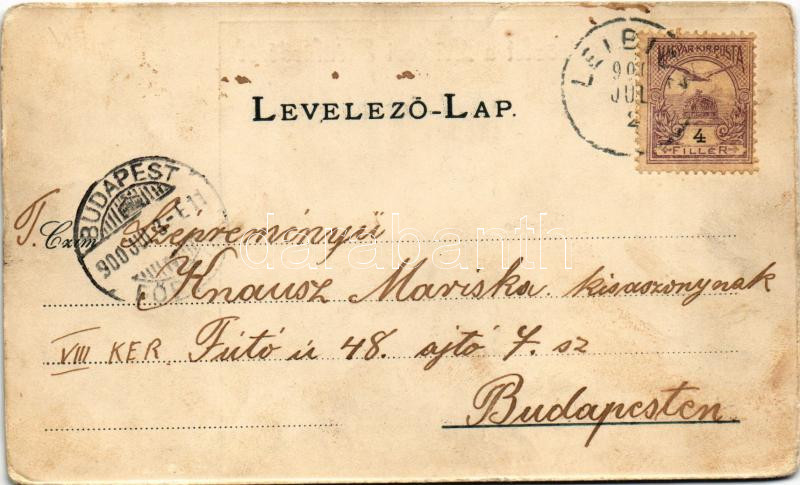 LEVELEZŐ-LAP.
LEIBI
900
JUL
2
MAGYAR KIR. POSTA
4
FILLÉR
BUDAPEST
900 JUL 3-E11
FŐP
T. Czim Szépreményű
Knausz Mariska kisaszonynak
VIII KER. Fútó ú 48. ajtó 7. sz
Budapesten
darabanth